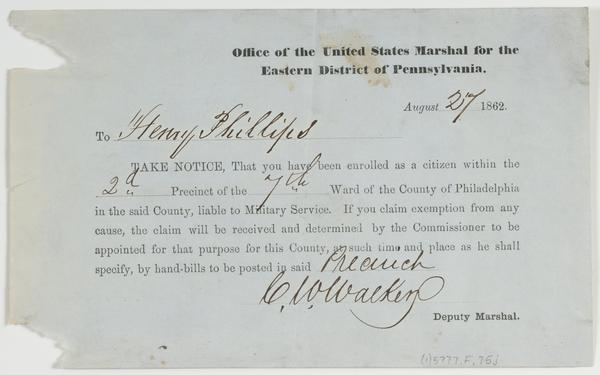 Office of the United States Marshal for the
Eastern District of Pennsylvania.
August 27 1862.
To Henry Phillips
TAKE NOTICE, That you have been enrolled as a citizen within the
2d Precinct of the 7th Ward of the County of Philadelphia
in the said County, liable to Military Service. If you claim exemption from any
cause, the claim will be received and determined by the Commissioner to be
appointed for that purpose for this County, at such time and place as he shall
specify, by hand-bills to be posted in said
C. W. Walker
Deputy Marshal.
(1)5777.F.75j